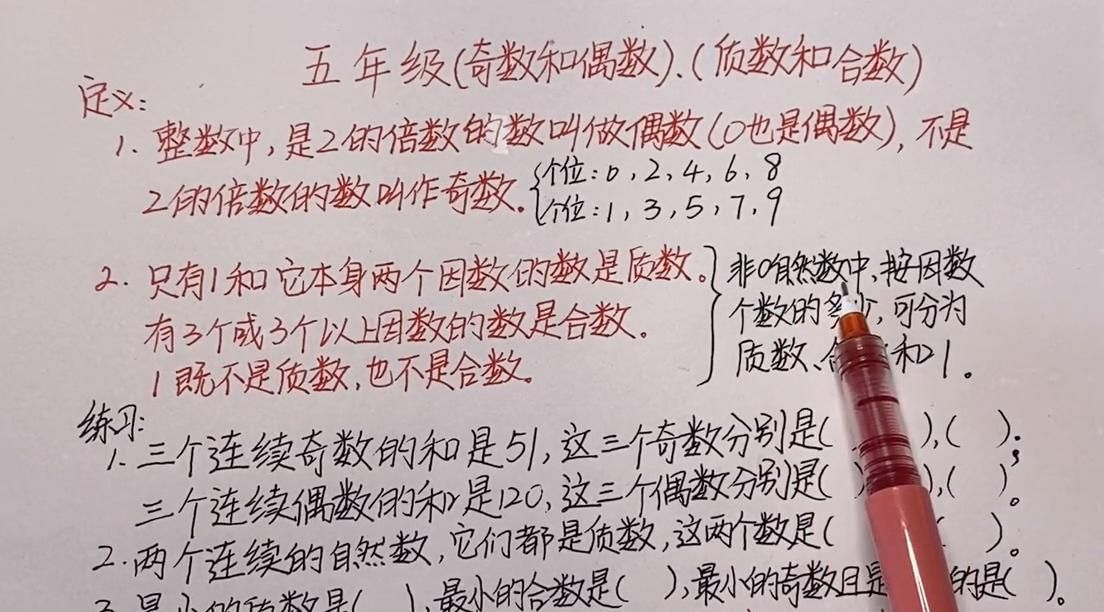 五年级(奇数和偶数)、(质数和合数)
定义:
1. 整数中,是2的倍数的数叫做偶数(0也是偶数),不是
2的倍数的数叫作奇数。
个位:0,2,4,6,8
个位:1,3,5,7,9
2. 只有1和它本身两个因数的数是质数。
有3个或3个以上因数的数是合数。
1既不是质数,也不是合数。
非0自然数中,按因数
个数的多少,可分为
质数、合 和1。
练习:
1. 三个连续奇数的和是51,这三个奇数分别是( ),( );
三个连续偶数的和是120,这三个偶数分别是( ) ),( )。
2. 两个连续的自然数,它们都是质数,这两个数是( ( )。
3. 最小的质数是( ),最小的合数是( ),最小的奇数且是 的是( )。